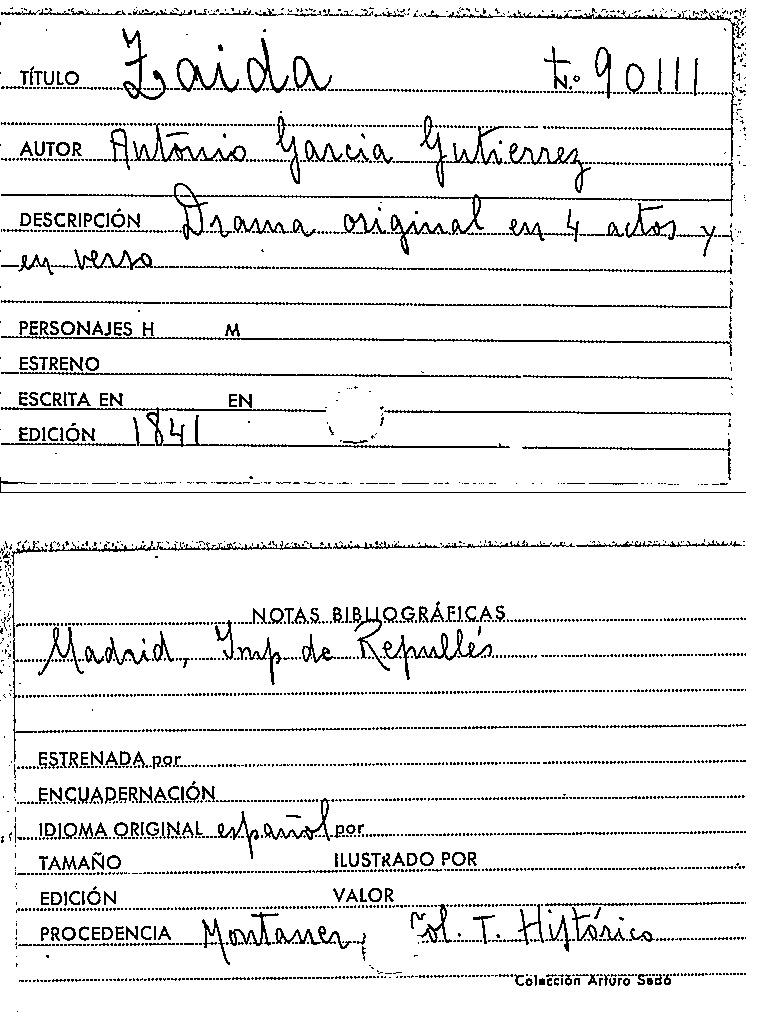 TÍTULO Zaida N.º 90111
AUTOR Antonio Garcia Gutierrez
DESCRIPCIÓN Drama original en 4 actos y
en verso
PERSONAJES H M
ESTRENO
ESCRITA EN EN
EDICIÓN 1841
NOTAS BIBLIOGRÁFICAS
Madrid, Imp de Repullés
ESTRENADA por
ENCUADERNACIÓN
IDIOMA ORIGINAL español por
TAMAÑO ILUSTRADO POR
EDICIÓN VALOR
PROCEDENCIA Montaner Col. T. Histórico
Colección Arturo Sedó